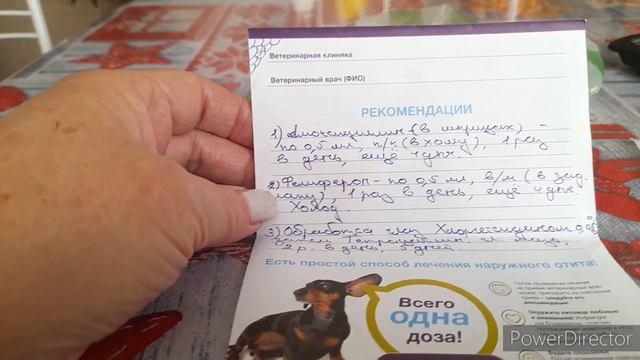 Ветеринарная клиника
Ветеринарный врач (ФИО)
РЕКОМЕНДАЦИИ
1) Амоксициллин (в шприцах) -
по 0,5 мл, п/к (в холку), 1 раз
в день, ещё 4 дня.
2) - по 0,5 мл, в/м (в зад.
лапу), 1 раз в день, ещё 4 дня.
Холод.
3) Обработка глаз Хлоргексидином 0,05%
затем Тетрациклин. гл. мазь,
2 р. в день 5 дней
Есть простой способ лечения наружного отита!
Всего
одна
доза!
PowerDirector